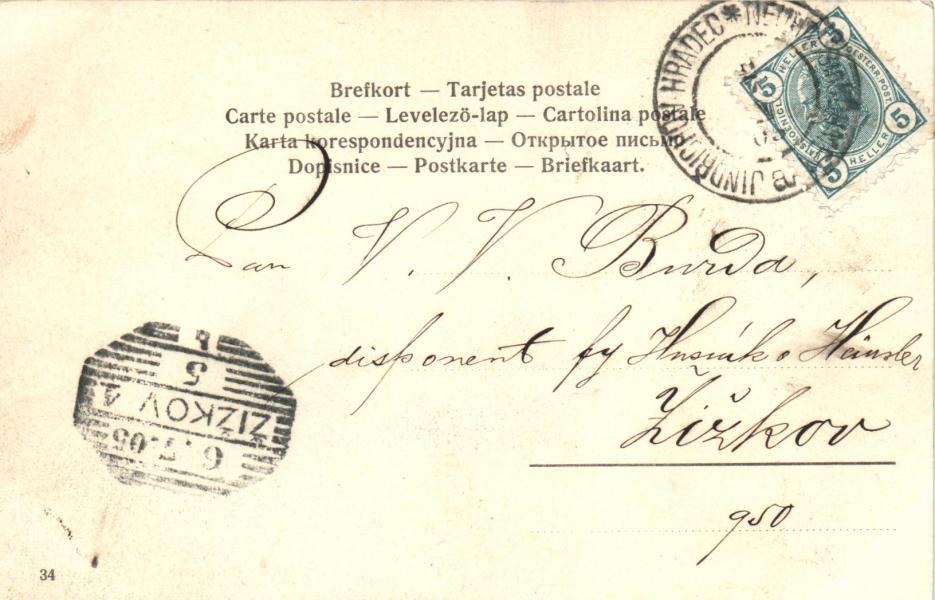 Brefkort — Tarjetas postale
Carte postale — Levelező-lap — Cartolina postale
Karta korespondencyjna — Открытое письмо
Dopisnice — Postkarte — Briefkaart.
JINDŘICHŮV HRADEC * NEUH
5 HELLER 5
5 HELLER 5
Pan V. V. Burda,
disponent fy Husák & Häusler
Žižkov
950
ŽIŽKOV 4
6.7.05
5
34